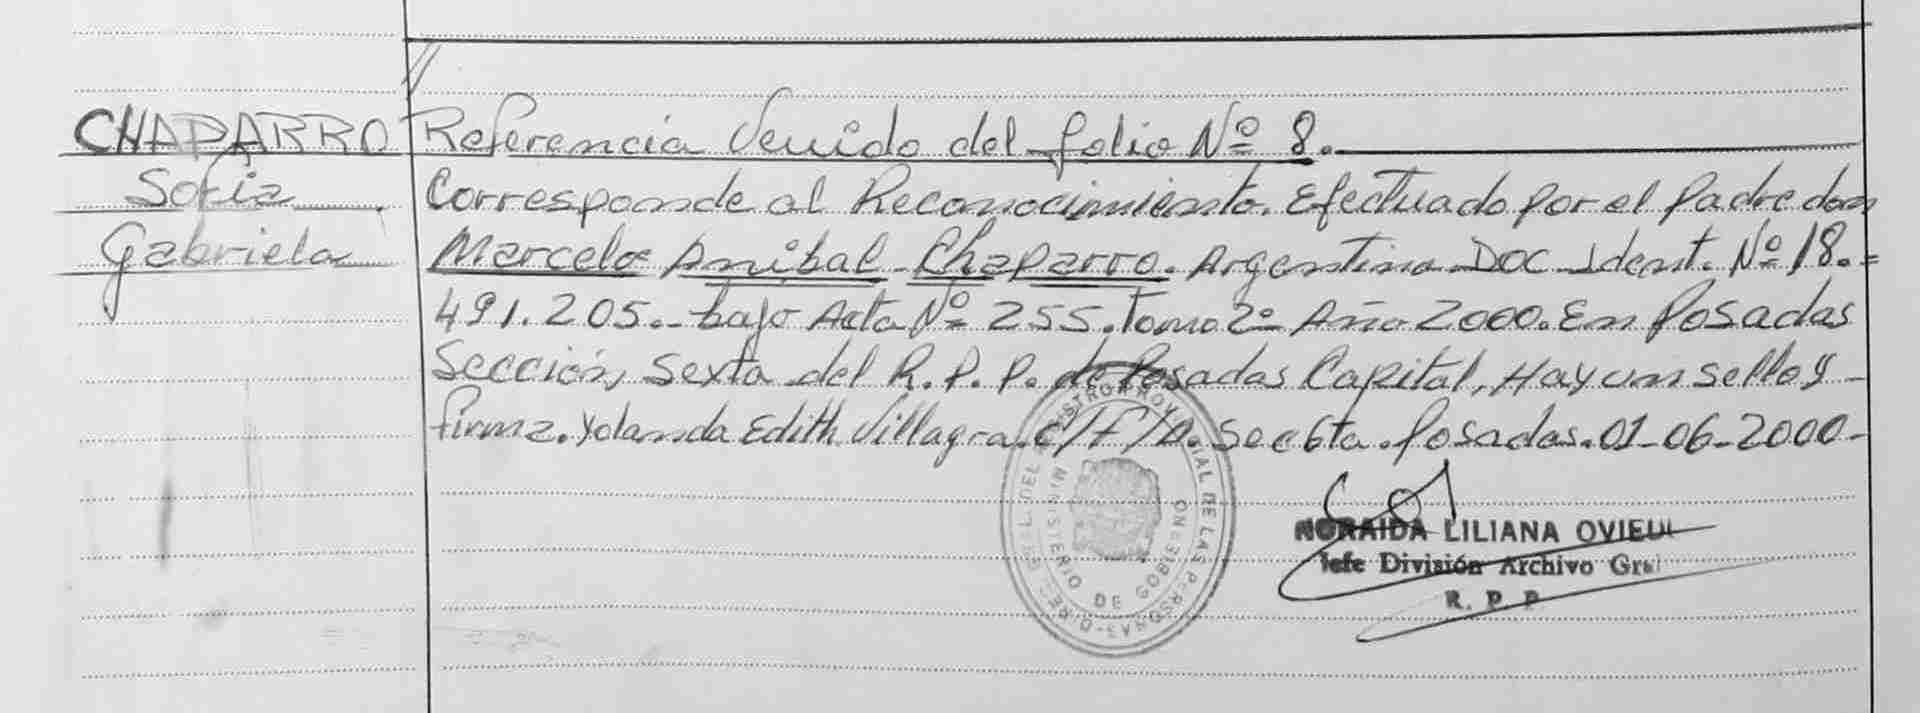 CHAPARRO
Sofia
Gabriela
Referencia Venido del folio Nº 8.
Corresponde al Reconocimiento. Efectuado por el Padre don
Marcelo Anibal Chaparro. Argentino DOC Ident. Nº 18.=
491.205.- bajo Acta Nº 255. Tomo 2º Año 2000. En Posadas
Sección, Sexta del R. P. P. de Posadas Capital, Hay un sello y
firma. Yolanda Edith Villagra. C/F/D. Sec 6ta. Posadas. 01-06-2000-
REGISTRO PROVINCIAL DE LAS PERSONAS
MINISTERIO DE GOBIERNO
NORAIDA LILIANA OVIEDO
Jefe División Archivo Gral
R. P. P.